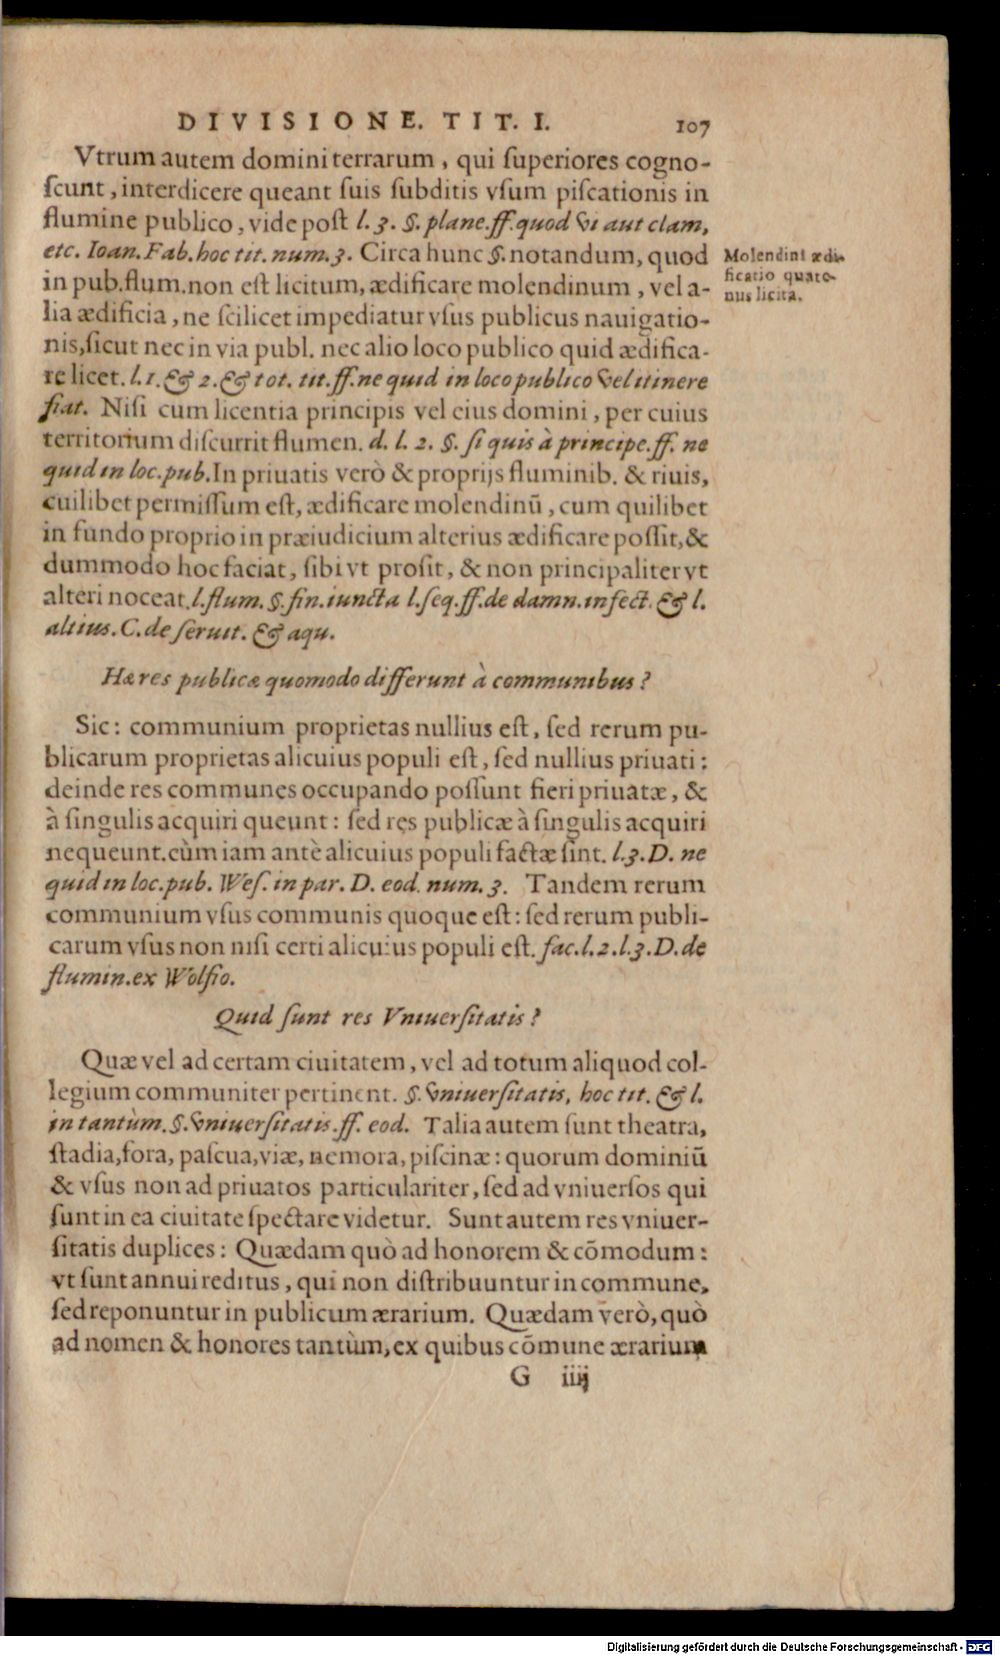 DIVISIONE. TIT. I. 107
Vtrum autem domini terrarum, qui superiores cogno-
scunt, interdicere queant suis subditis vsum piscationis in
flumine publico, vide post l. 3. §. plane. ff. quod vi aut clam,
etc. Ioan. Fab. hoc tit. num. 3. Circa hunc §. notandum, quod
in pub. flum. non est licitum, ædificare molendinum, vel a-
lia ædificia, ne scilicet impediatur vsus publicus nauigatio-
nis, sicut nec in via publ. nec alio loco publico quid ædifica-
re licet. l. 1. & 2. & tot. tit. ff. ne quid in loco publico vel itinere
fiat. Nisi cum licentia principis vel eius domini, per cuius
territorium discurrit flumen. d. l. 2. §. si quis à principe. ff. ne
quid in loc. pub. In priuatis verò & proprijs fluminib. & riuis,
cuilibet permissum est, ædificare molendinū, cum quilibet
in fundo proprio in præiudicium alterius ædificare possit, &
dummodo hoc faciat, sibi vt prosit, & non principaliter vt
alteri noceat. l. flum. §. fin. iuncta l. seq. ff. de damn. infect. & l.
altius. C. de seruit. & aqu.
Molendini ædi-
ficatio quate-
nus licita.
Hæ res publicæ quomodo differunt à communibus?
Sic: communium proprietas nullius est, sed rerum pu-
blicarum proprietas alicuius populi est, sed nullius priuati:
deinde res communes occupando possunt fieri priuatæ, &
à singulis acquiri queunt: sed res publicæ à singulis acquiri
nequeunt. cùm iam antè alicuius populi factæ sint. l. 3. D. ne
quid in loc. pub. Wes. in par. D. eod. num. 3. Tandem rerum
communium vsus communis quoque est: sed rerum publi-
carum vsus non nisi certi alicuius populi est. fac. l. 2. l. 3. D. de
flumin. ex Wolfio.
Quid sunt res Vniuersitatis?
Quæ vel ad certam ciuitatem, vel ad totum aliquod col-
legium communiter pertinent. §. vniuersitatis, hoc tit. & l.
in tantùm. §. vniuersitatis. ff. eod. Talia autem sunt theatra,
stadia, fora, pascua, viæ, nemora, piscinæ: quorum dominiū
& vsus non ad priuatos particulariter, sed ad vniuersos qui
sunt in ea ciuitate spectare videtur. Sunt autem res vniuer-
sitatis duplices: Quædam quò ad honorem & cōmodum:
vt sunt annui reditus, qui non distribuuntur in commune,
sed reponuntur in publicum ærarium. Quædam verò, quò
ad nomen & honores tantùm, ex quibus cōmune ærarium
G iiij
Digitalisierung gefördert durch die Deutsche Forschungsgemeinschaft - DFG